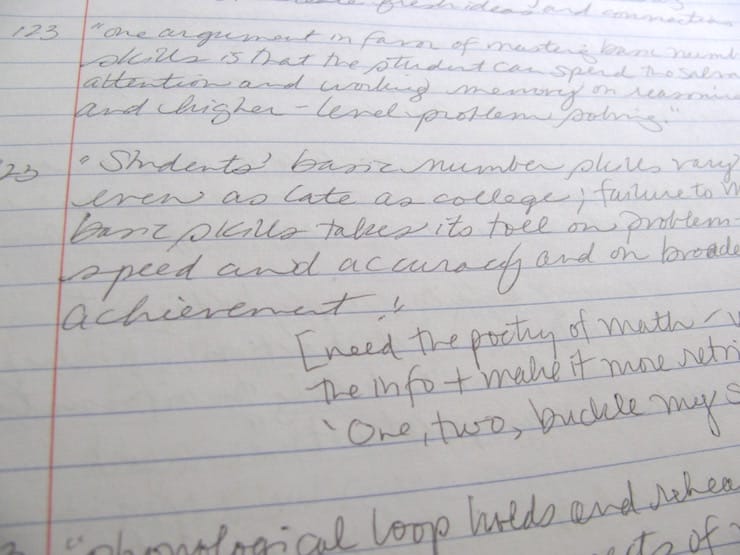 fresh ideas and connections
123 "one argument in favor of mastering basic numb
skills is that the student can spend the
attention and working memory on reasoning
and higher-level problem solving."
23 • Students' basic number skills vary
even as late as college; failure to
basic skills takes its toll on problem-
speed and accuracy and on broade
achievement!
[need the poetry of math
the info + make it more retri
'One, two, buckle my s
"phonological loop holds and rehea
of